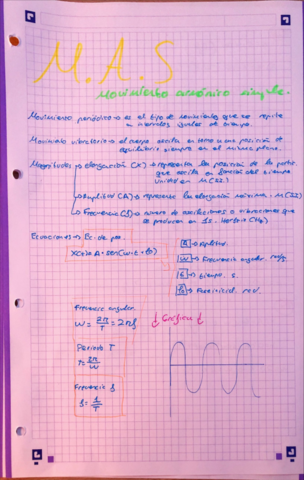 M.A.S
Movimiento armónico simple.
Movimiento periódico → es el tipo de movimiento que se repite
a intervalos iguales de tiempo.
Movimiento vibratorio → el cuerpo oscila en torno a una posición de
equilibrio siempre en el mismo plano.
Magnitudes → elongación (X) → representa la posición de la partic.
que oscila en función del tiempo
unidad en M(SI).
Amplitud (A) → representa la elongación máxima. M(SI)
Frecuencia (f) → número de oscilaciones o vibraciones que
se producen en 1s. Hertzio (Hz)
Ecuaciones → Ec. de pos.
X(t)=A·sen(w·t+φo)
A → Amplitud.
W → Frecuencia angular. rad/s
t → tiempo. s.
φo → Fase inicial. rad.
Frecuencia angular.
W = 2π/T = 2πf
Gráfica
Periodo T
T = 2π/W
Frecuencia f
f = 1/T